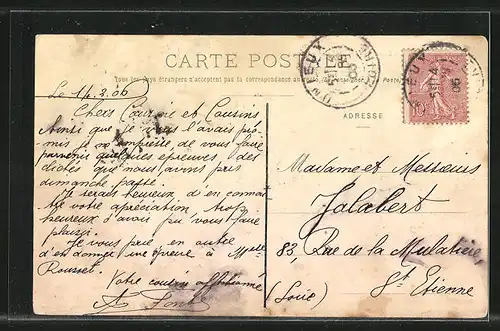 CARTE POSTALE
Tous les pays étrangers n'acceptent pas la correspondance au
ADRESSE
Le 14.3.06
Chers Cousine et Cousins
Ainsi que je vous l'avais pro-
mis je m'empresse de vous faire
parvenir quelques épreuves des
clichés que nous avons pris
dimanche passé
Je serais heureux d'en connaî
tre votre apréciation, trop
heureux d'avoir pu vous faire
plaisir.
Je vous prie en outre
d'en donner une épreuve à Melle
Rousset.
Votre cousin affectionné
Madame et Messieurs
Jalabert
83, Rue de la Mulatière
St Etienne
(Loire)
UNIEUX
LOIRE